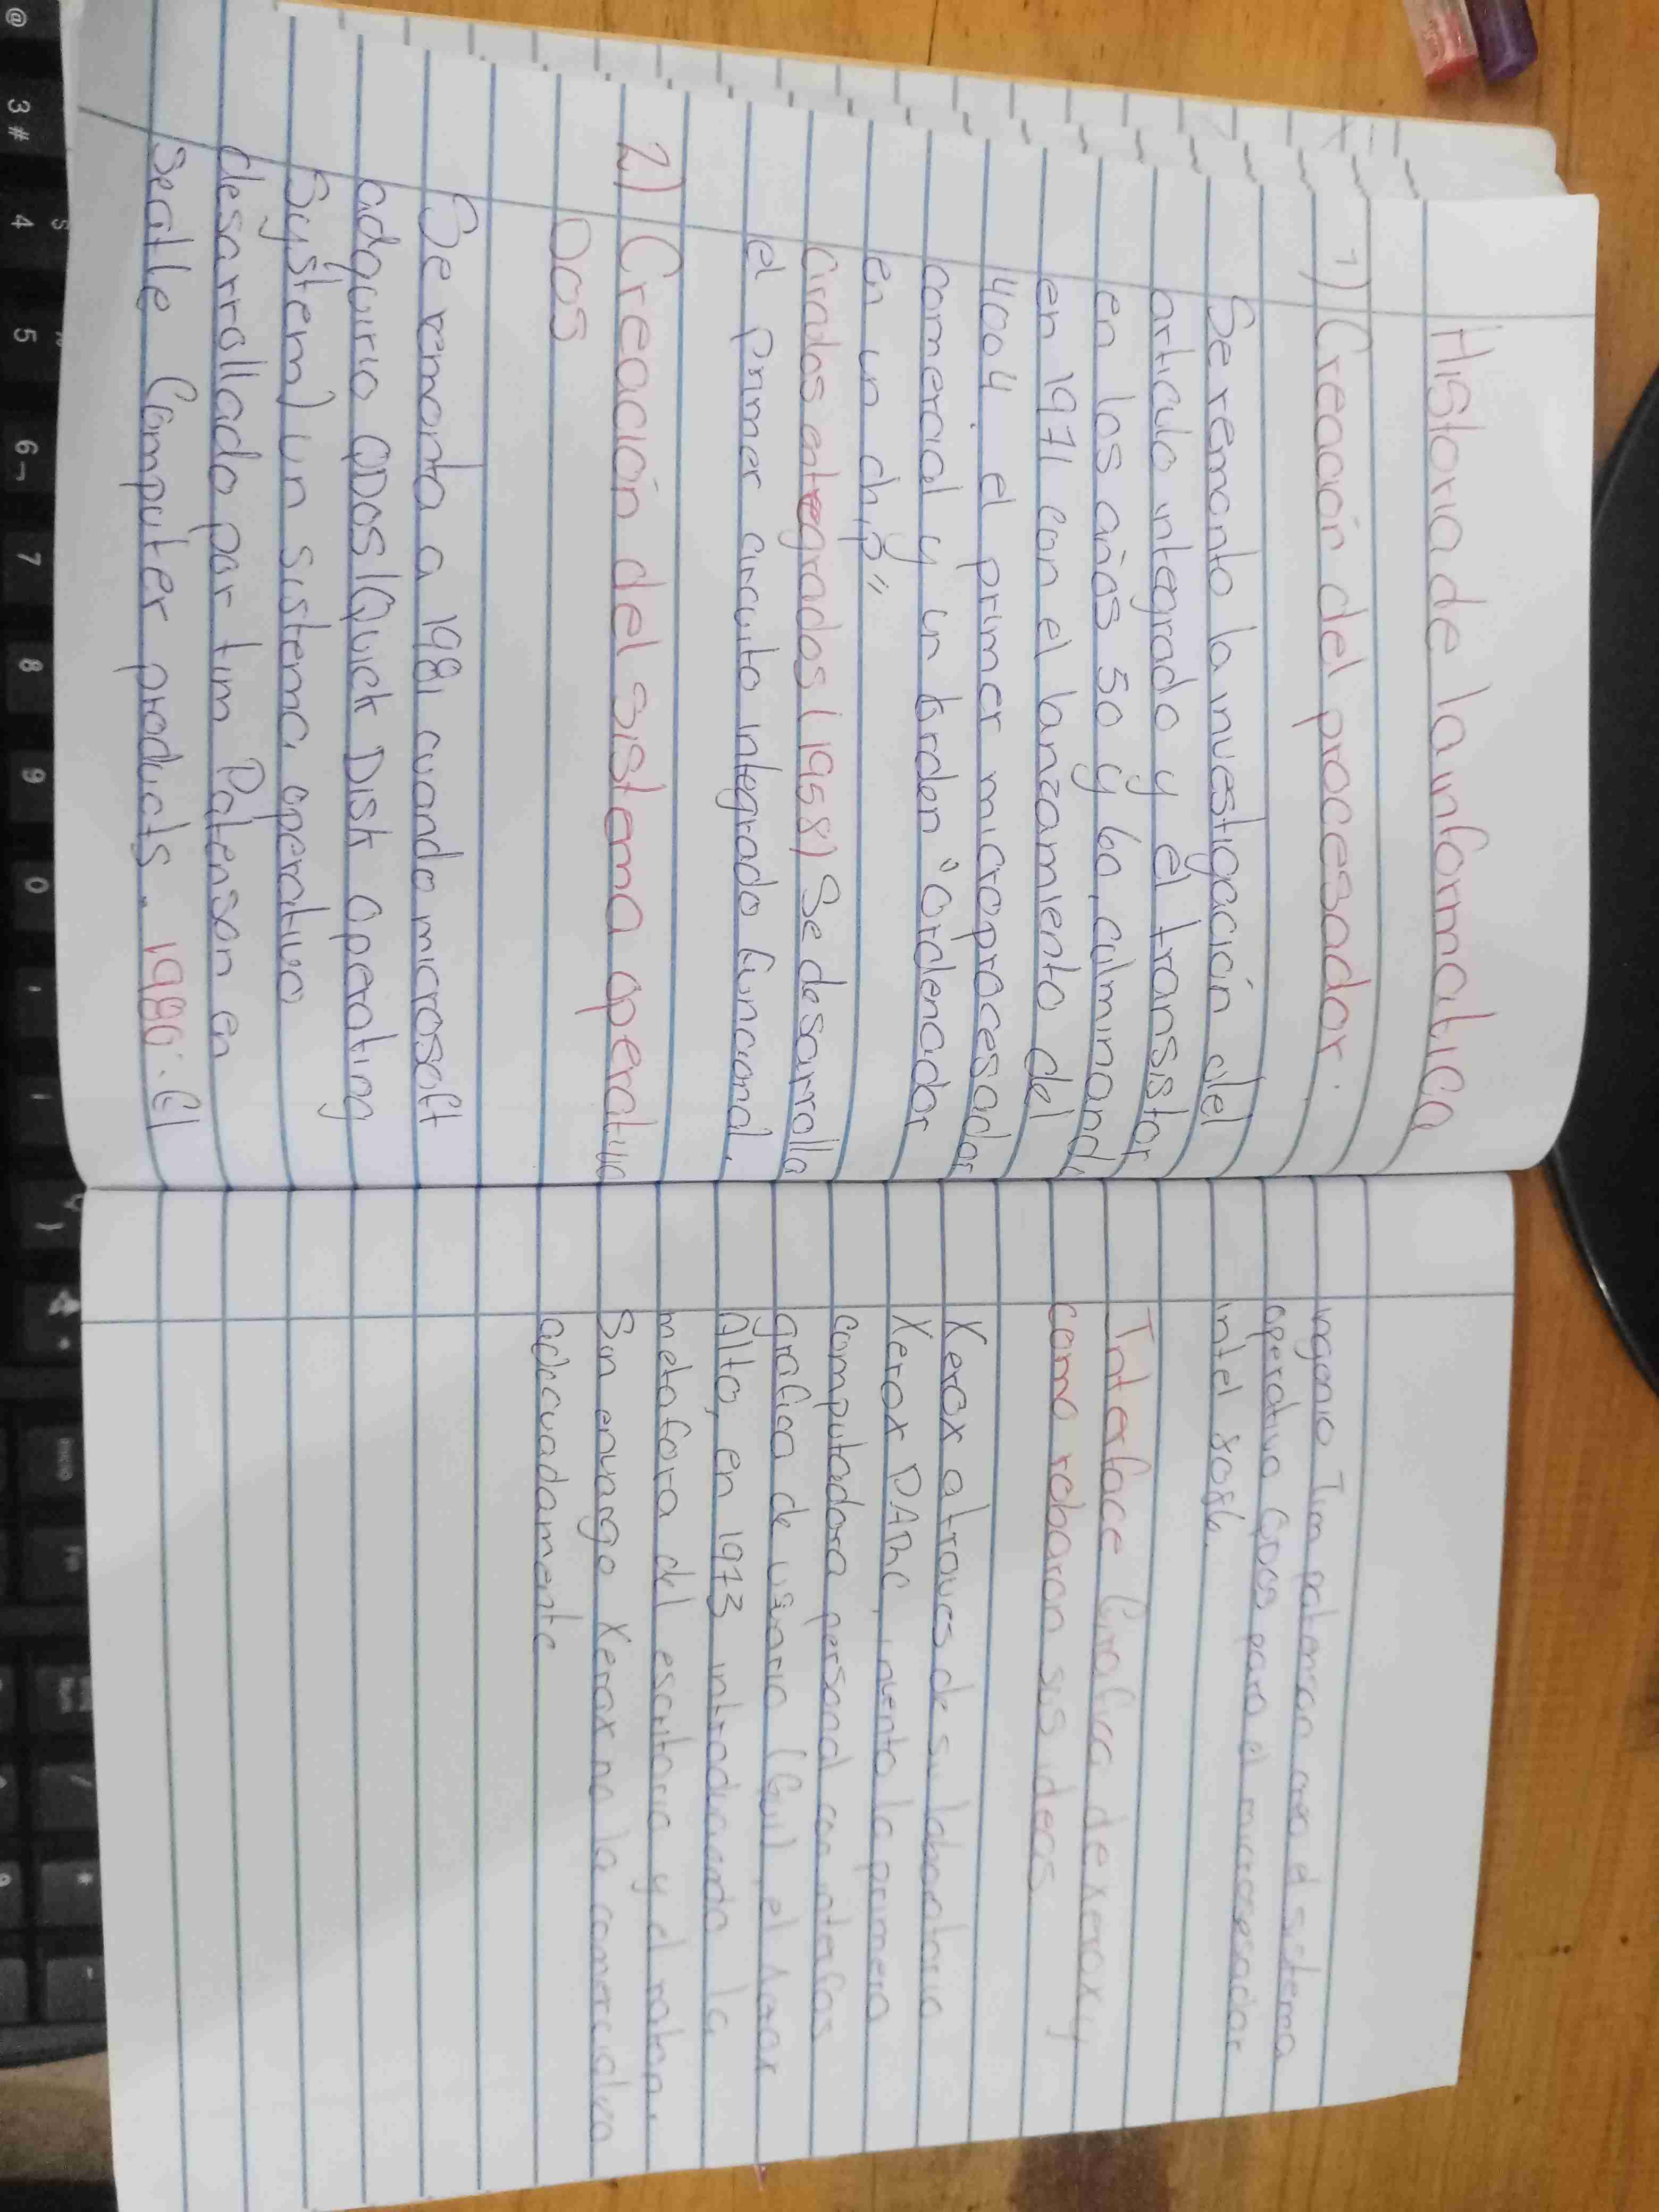 Historia de la informatica
1) Creación del procesador.
Se remonto la investigación del
articulo integrado y el transistor
en los años 50 y 60, culminando
en 1971 con el lanzamiento del
4004. el primer microprocesador
comercial y un orden "ordenador
en un chip"
Cirados entregrados (1958) Se desarrolla
el primer circuito integrado funcional.
2) Creación del sistema operativo
DOS
Se remonta a 1981 cuando microsoft
adquirio QDOS (Quick Disk operating
System) un sistema operativo
desarrollado por tim Patenson en
Seatle Computer products. 1980: El
ingenio Tim patenson crea el sistema
operativo QDOS para el microsesador
intel 8086.
Interface Grafica de xerox y
como robaron sus ideas
Xerox a traves de su laboratorio
Xerox PARC, invento la primera
computadora personal con interfas
grafica de usuario (Gui), el Xerox
Alto, en 1973 introduciendo la
metafora del escritorio y el raton.
Sin envargo Xerox no la comercializo
adecuadamente
@
3 #
4
5
6
7
8
9
0
Inicio
Fin